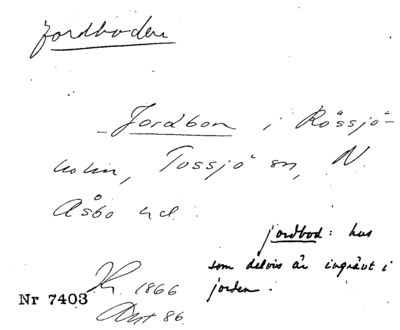 Jordboden
Jordbon i Rössjö-
holm, Tossjö sn, N.
Åsbo hd.
jordbod: hus
som delvis är ingrävt i
jorden.
1866
Nr 7403
86